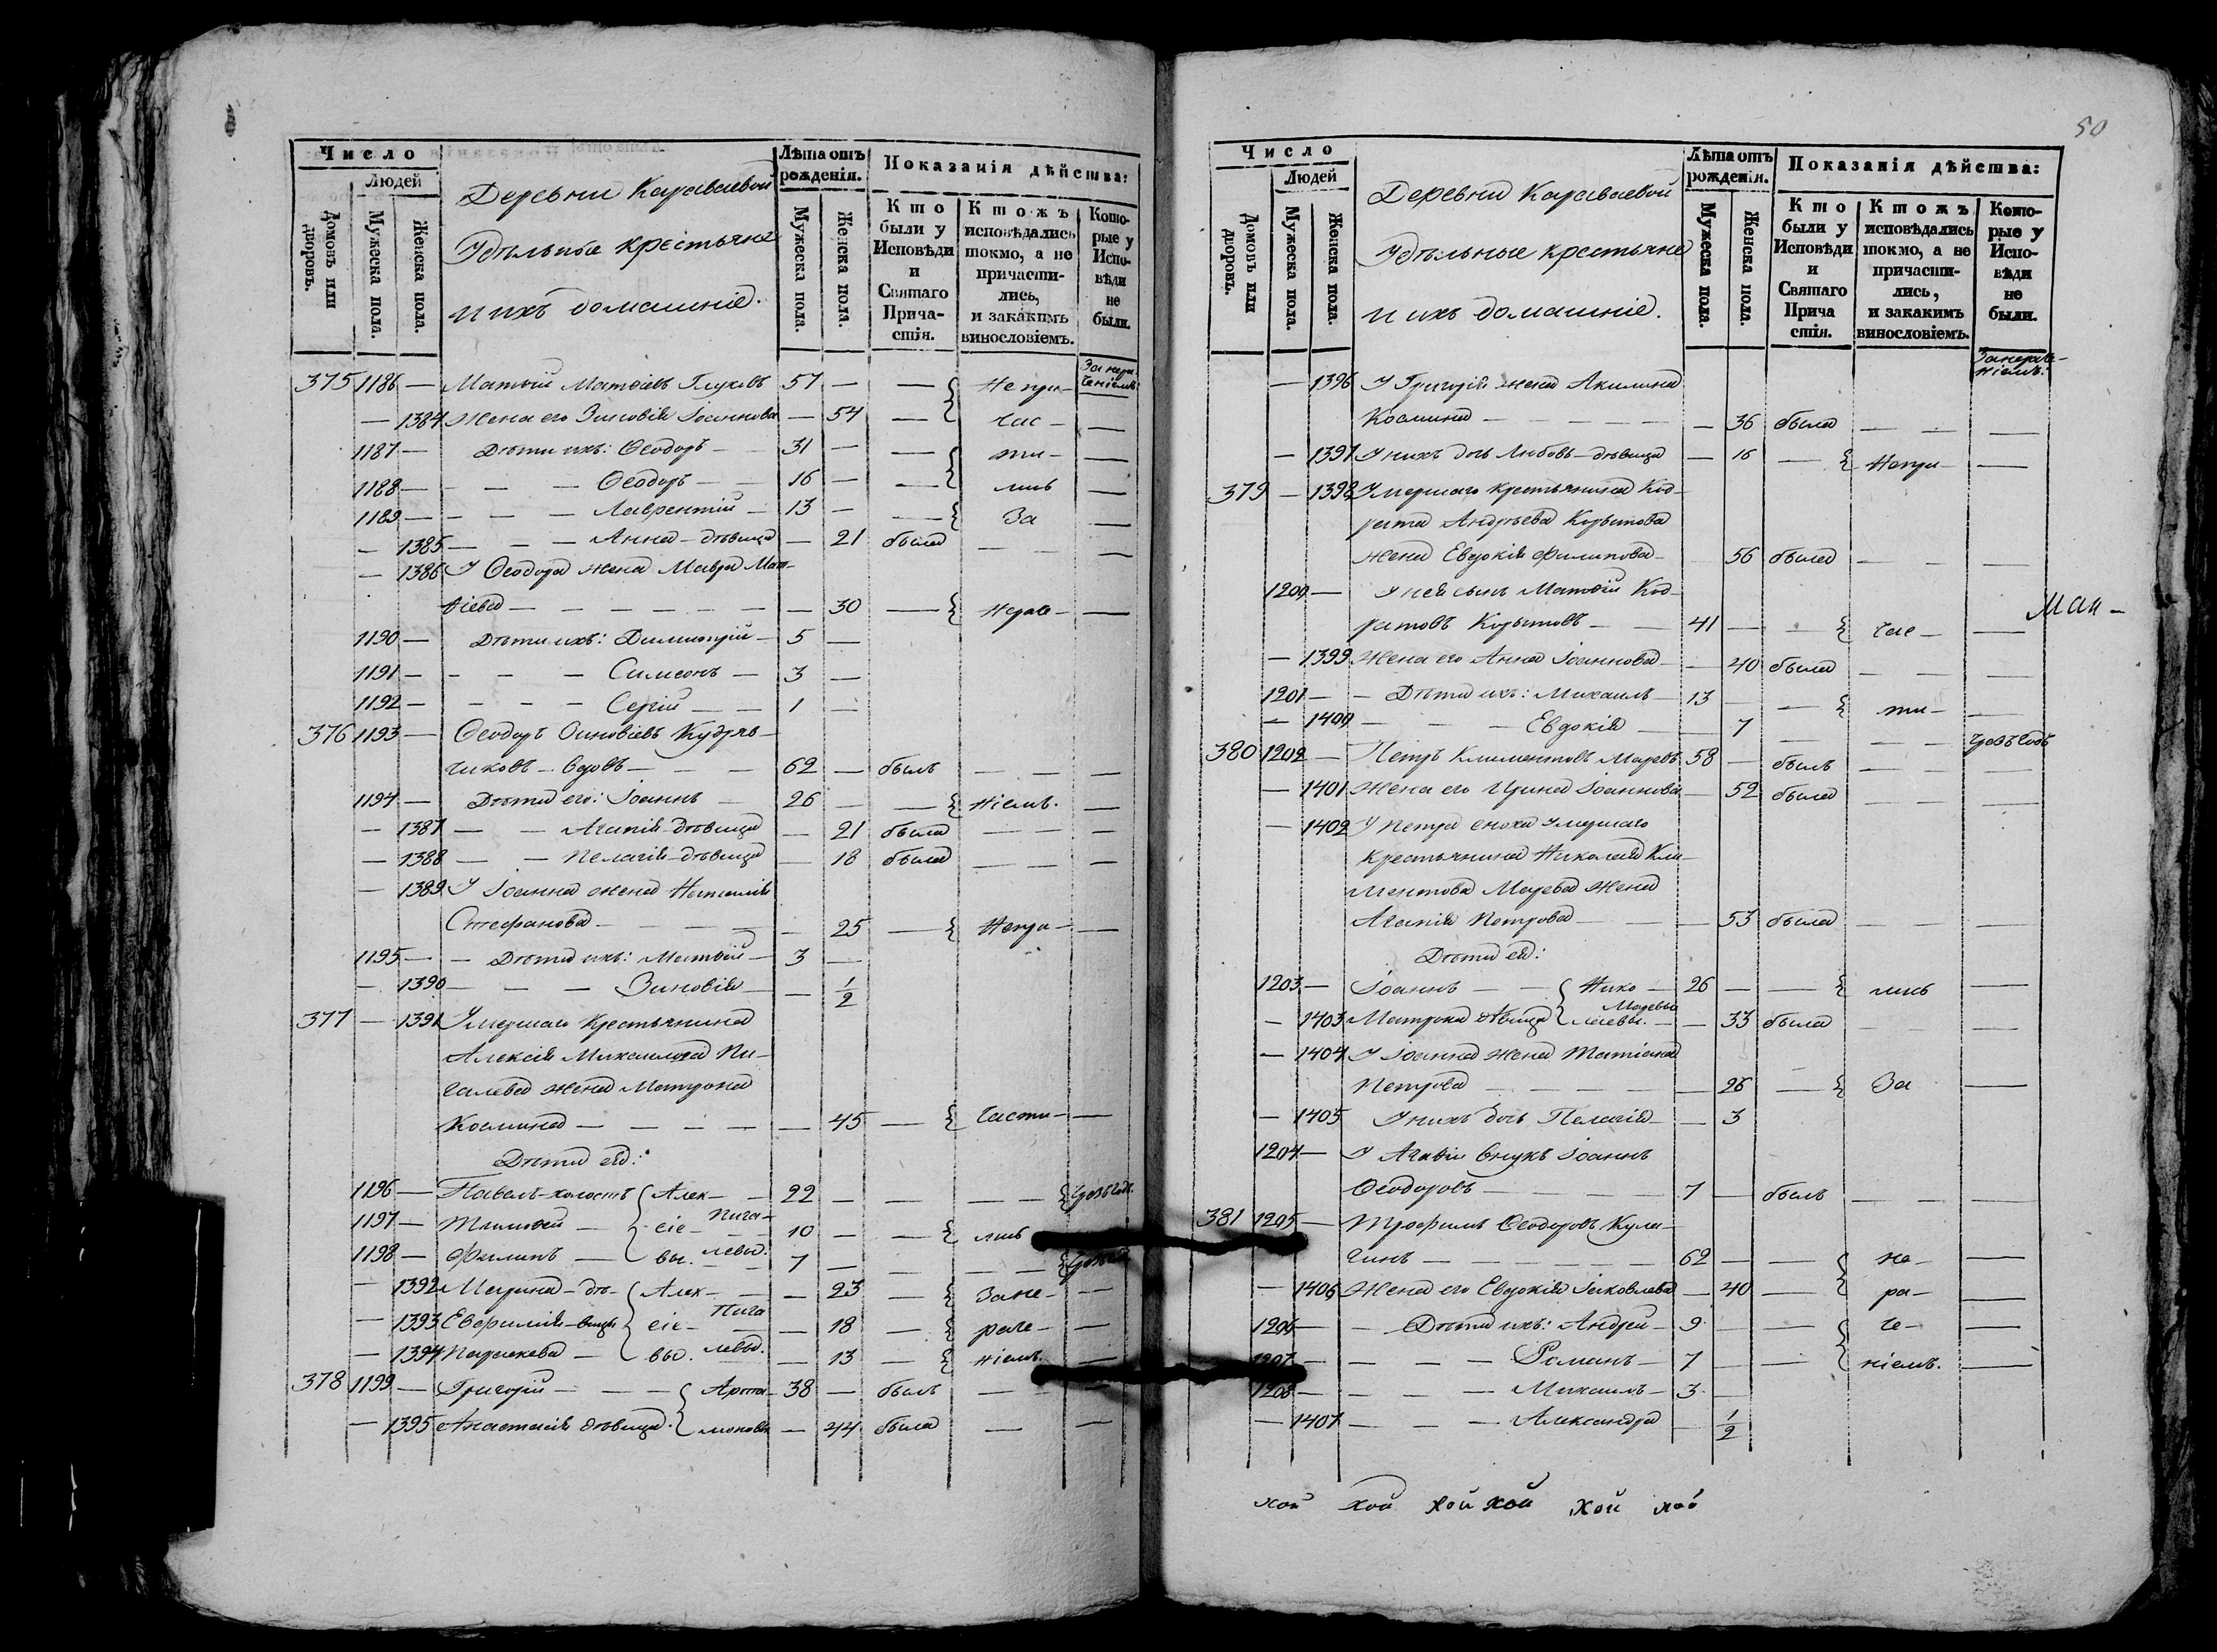 Число
Людей
Домовъ или дворовъ.
Мужеска пола.
Женска пола.
Деревни Караваевой
Удѣльные крестьяне
и ихъ домашніе.
Лѣта отъ рожденія.
Мужеска пола.
Женска пола.
Показанія дѣйства:
Кто были у Исповѣди и Святаго Причастія.
Ктожъ исповѣдались токмо, а не причастились, и закакимъ винословіемъ.
Которые у Исповѣди не были.
375 1186 — Матѳій Матѳіевъ 57 — — Непри-
— 1384 Жена его Зиновія Іоаннова — 54 — час — —
1187 — Дѣти ихъ: Ѳеодоръ — 31 — — ти- —
1188 — — — — Ѳеодоръ — — 16 — — лись —
1189 — — — — Лаврентій — 13 — — За —
— 1385 — — — Анна – дѣвица — 21 была — — —
— 1386 У Ѳеодора жена Мавра Мат-
ѳіева — — — — — — — 30 — нераче- —
1190 — Дѣти ихъ: Димитрій — 5 —
1191 — — — — Симеонъ — 3 —
1192 — — — — Сергій — — 1 —
376 1193 — Ѳеодоръ Зиновіевъ Кудря-
чиковъ – вдовъ — — — 62 — былъ — — —
1194 — Дѣти его: Іоаннъ — 26 — — ніемъ. —
— 1387 — — Агапія – дѣвица — 21 была — — —
— 1388 — — Пелагія – дѣвица — 18 была — — —
— 1389 У Іоанна жена Наталія
Стефанова — — — — — 25 — Непри- —
1195 — — Дѣти ихъ: Матѳій — 3 —
— 1390 — — — Зиновія — — 1/2
377 — 1391 Умершаго крестьянина
Алексія Михаилова Пи-
галева жена Матрона
Космина — — — — — 45 — части- —
Дѣти ея:
1196 — Павелъ – холостъ Алек- — 22 — — — — чрезъ годъ.
1197 — Тимоѳей — сіе- Пига- 10 — — лись
1198 — Филипъ — вы. левы. 7 — — — —
— 1392 Марина – дѣ- Алек- — — 23 — Зане- —
— 1393 Евфимія – вицы сіе- Пига — 18 — раче- —
— 1394 Параскева — вы. левы. — 13 — ніемъ. —
378 1199 — Григорій — — — Арта- 38 — былъ — — —
— 1395 Анастасія дѣвица. моновы — 44 была — —
50
Число
Людей
Домовъ или дворовъ.
Мужеска пола.
Женска пола.
Деревни Караваевой
Удѣльные крестьяне
и ихъ домашніе.
Лѣта отъ рожденія.
Мужеска пола.
Женска пола.
Показанія дѣйства:
Кто были у Исповѣди и Святаго Причастія.
Ктожъ исповѣдались токмо, а не причастились, и закакимъ винословіемъ.
Которые у Исповѣди не были.
Занераче-
ніемъ.
— 1396 У Григорія жена Акилина
Космина — — — — — — 36 была — — —
— 1397 У нихъ дочь Любовь – дѣвица — 16 — Непри- —
379 — 1398 Умершаго крестьянина Код-
рата Андрѣева Корытова
жена Евдокія Филипова — 56 была — — —
1200 — У нея сынъ Матѳій Код-
ратовъ Корытовъ — — 41 — — час- —
Ман-
— 1399 Жена его Анна Іоаннова — — 40 была — — —
1201 — — Дѣти ихъ: Михаилъ — 13 — — ти- —
— 1400 — — — Евдокія — — 7 — — — —
чрезъ годъ
380 1202 — Петръ Климентовъ Маревъ 58 — былъ — — —
— 1401 Жена его Ирина Іоаннова — 52 была — — —
— 1402 У Петра сноха умершаго
крестьянина Николая Кли-
ментова Марева жена
Агапія Петрова — — — 53 была — — —
Дѣти ея:
1203 — Іоаннъ — — Нико — 26 — — лись —
— 1403 Матрона дѣвица лаевы. Маревы — — 33 была — — —
— 1404 У Іоанна жена Татіана
Петрова — — — — — 26 — За —
— 1405 У нихъ дочь Пелагія — — 3
1204 — У Агапіи внукъ Іоаннъ
Ѳеодоровъ — — — — 7 — былъ — — —
381 1205 — Трофимъ Ѳеодоровъ Кула-
гинъ — — — — — 62 — — не- —
— 1406 Жена его Евдокія Іаковлева — 40 — ра- —
1206 — — Дѣти ихъ: Андрей — 9 — — че- —
1207 — — — — Романъ — 7 — — ніемъ. —
1208 — — — — Михаилъ — 3 —
— 1407 — — — Александра — 1/2
хой хой хой хой хой